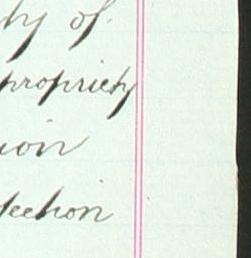 ty of
propriety
ion
tection